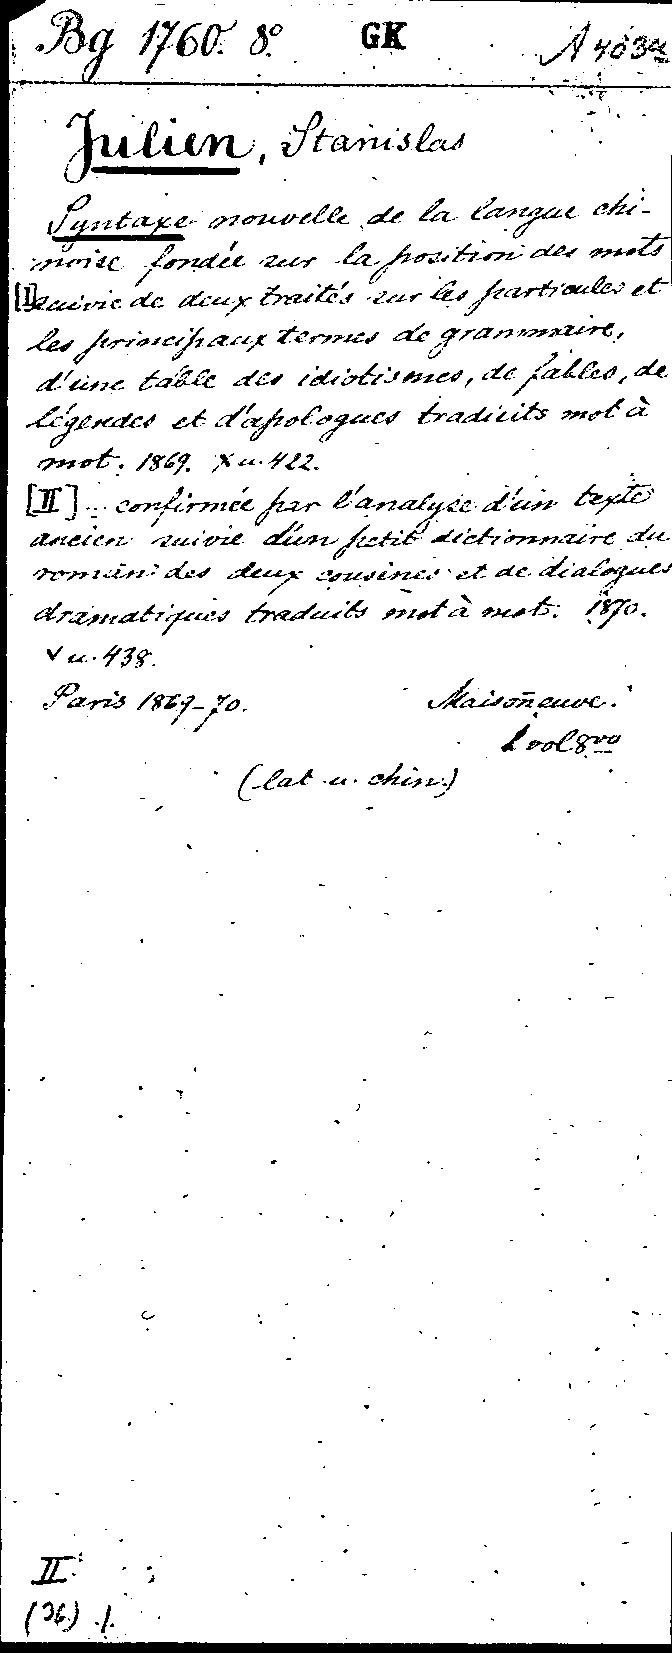 Bg 1760. 8° GK A 403a
Julien, Stanislas
Syntaxe nouvelle de la langue chi-
noise fondée sur la position des mots
[I] suivie de deux traités sur les particules et
les principaux termes de grammaire,
d'une table des idiotismes, de fables, de
légendes et d'apologues traduits mot à
mot. 1869. X u. 422.
[II] .. confirmée par l'analyse d'un texte
ancien suivie d'un petit dictionnaire du
roman des deux cousines et de dialogues
dramatiques traduits mot à mot. 1870.
V u. 438.
Paris 1869-70. Maisonneuve.
vol 8vo
(lat u. chin.)
II.
(36) /.